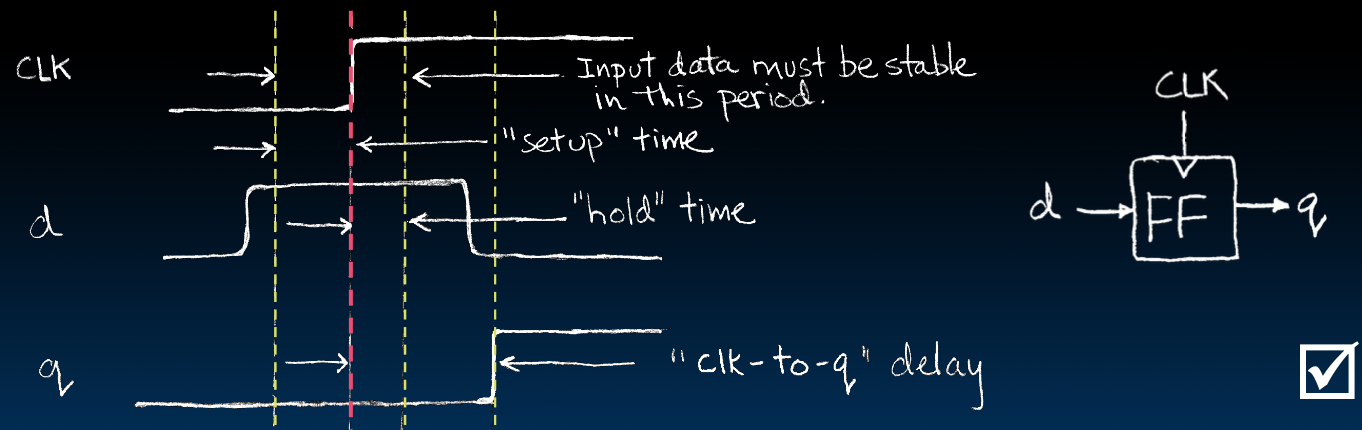 CLK
Input data must be stable
in this period.
"setup" time
d
"hold" time
q
"clk-to-q" delay
CLK
d
FF
q